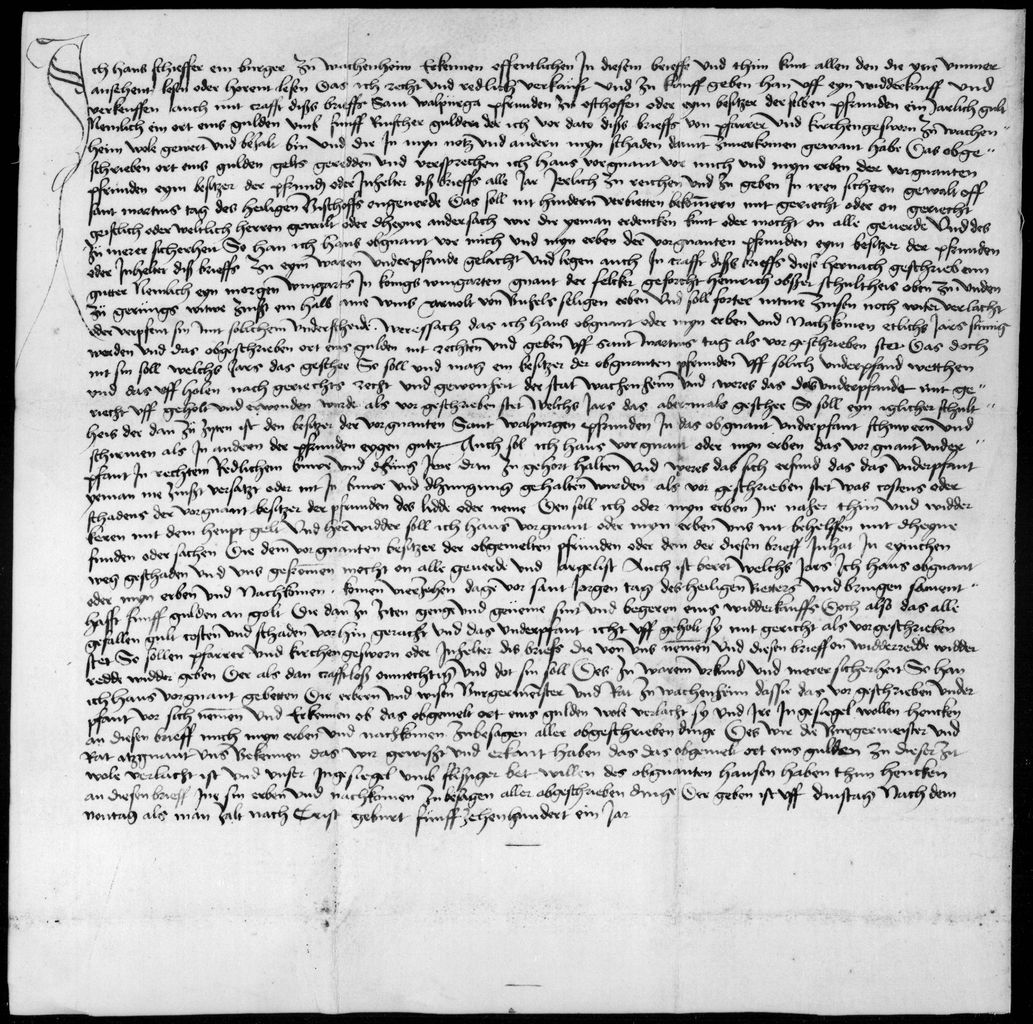 Ich hans schieffer ein burger zu wachenheim Erkennen offentlichen In diesem brieffe und thun kunt allen den die yne ummer
ansehent lesen oder horent lesen Das ich recht und redlich verkaufft und zu kauff geben han uff eyn widderkauff und
verkeuffen auch mit crafft diss brieffs Sant walpurga pfrunden zu osthoffen oder eym besitzer der selben pfrunden ein Jarlich gult
Nemlich ein ort eins gulden umb funff Rinscher gulden der ich vor dato diss brieffs von pfarrer und kirchengesworn zu wachen=
heim wole gewert und bezalt bin und die In myn notz und andern myn schaden damit zuverkomen gewant habe Das obge=
schrieben ort eins gulden gelts geredden und versprechen ich hans vorgnant vor mich und myn erben der vorgnanten
pfrunden eym besitzer der pfrund oder Inhelter diss brieffs alle Jar Jerlich zu reichen und zu geben In iren sichern gewalt uff
sant martins tag des heiligen Bischoffs ongeuerde Das soll nit hindern verbietten bekomern mit geriecht oder on geriecht
geistlich oder weltlich herren gewalt oder dheyne andersach wie die yeman erdencken kunt oder mocht on alle geuerde Und des
zu merer sicherheit So han ich hans obgnant vor mich und myn erben der vorgnanten pfrunden eym besitzer der pfrunden
oder Inhelter diss brieffs zu eym waren underpfande gelacht und legen auch In crafft diss brieffs diese hernach geschrieben
gutter Nemlich eyn morgen wingarts In konigs wingarten gnant der geforcht heinrich schultheis oben zu unden
zu witwe zinsst ein halb ame wins arnolt von seligen erben und soll forter nyme zinsen noch witer verlacht
oder verpfent sin mit solichem underscheide. Weressach das ich hans obgnant oder myn erben und Nachkomen etlichs Jars sumig
worden und das obgeschrieben ort eins gulden nit rechten und geben uff sant martins tag als vor geschrieben stet Das doch
nit sin soll welchs Jars das geschee So soll und mag ein besitzer der obgnanten pfrunden uff solich underpfand wetthen
und das uff holen nach geriechts recht und gewonheit der stat wachenheim und weres das das underpfande mit ge=
riecht uff geholt und erwonden wurde als vor geschrieben stet Welchs Jars das abermals geschee So soll eyn iglicher schult=
heis der dan zu zyten ist den besitzer der vorgnanten Sant walpurgen pfrunden In das obgnant underpfant schuren und
schirmen als In anderen der pfrunden eygen gutter Auch sol ich hans vorgnant oder myn erben das vorgnant under=
pfant In rechtem Redlichem buwe und dhung Jme dan zu gehort halten Und weres das sich erfund das das underpfant
yeman me zinsst versatzt oder nit In buwe und dhungung gehalten wurden als vor geschrieben stet was costens oder
schadens der vorgnant besitzer der pfrunden des lidde oder neme Den soll ich oder myn erben Jne naher thun und widder
keren mit dem heupt gelt Und herwidder soll ich hans vorgnant oder myn erben uns nit behelffen mit dheyne
funden oder sachen Die dem vorgnanten besitzer der obgemelten pfrunden oder dem der diesen brieff Inhat In eynichen
weg geschaden und uns gefromen mocht on alle geuerde und argelist Auch ist beret welchs Jars Ich hans obgnant
oder myn erben und Nachkomen. komen vierzehen dage vor sant Jorgen tag des heiligen Ritters und bringen sament=
hafft funff gulden an golt Die dan zu ziten geng und geneme sint und begeren eins widderkauffs Doch also das alle
gefallen gult costen und schaden vorhin geracht und das underpfant icht uff geholt sy mit gericht als vorgeschrieben
stet So sollen pfarrer und kirchengesworn oder Inhelter dis brieffs die von uns nemen und diesen brieff on widderredde widder
redde widder geben Der als dan crafftloss onmechtig und dot sin soll Des zu warem urkund und merer sicherheit So han
ich hans vorgnant gebetten Die erbern und wysen Burgermeister und Rat zu wachenheim dassie das vor geschrieben under
pfant vor sich nemen und Erkennen ob das obgemelt ort eins gulden wole verlacht sy und Ire Ingesiegel wollen hencken
an diesen brieff mich myn erben und nachkomen zubesagen aller obgeschrieben dinge Des wir die Burgermeister und
Rat itzgnant Uns Bekennen das wir gewisst und erkant haben das das obgemelt ort eins gulden zu dieser zyt
wole verlacht ist und unser Ingesiegel umb flissiger bet willen des obgnanten hansen haben thun hencken
an diesen brieff Jne sin erben und nachkomen zu besagen aller obgeschrieben dinge Der geben ist uff dinstag Nach dem
als man zalt nach Crist geburt funffzehenhundert ein Jar